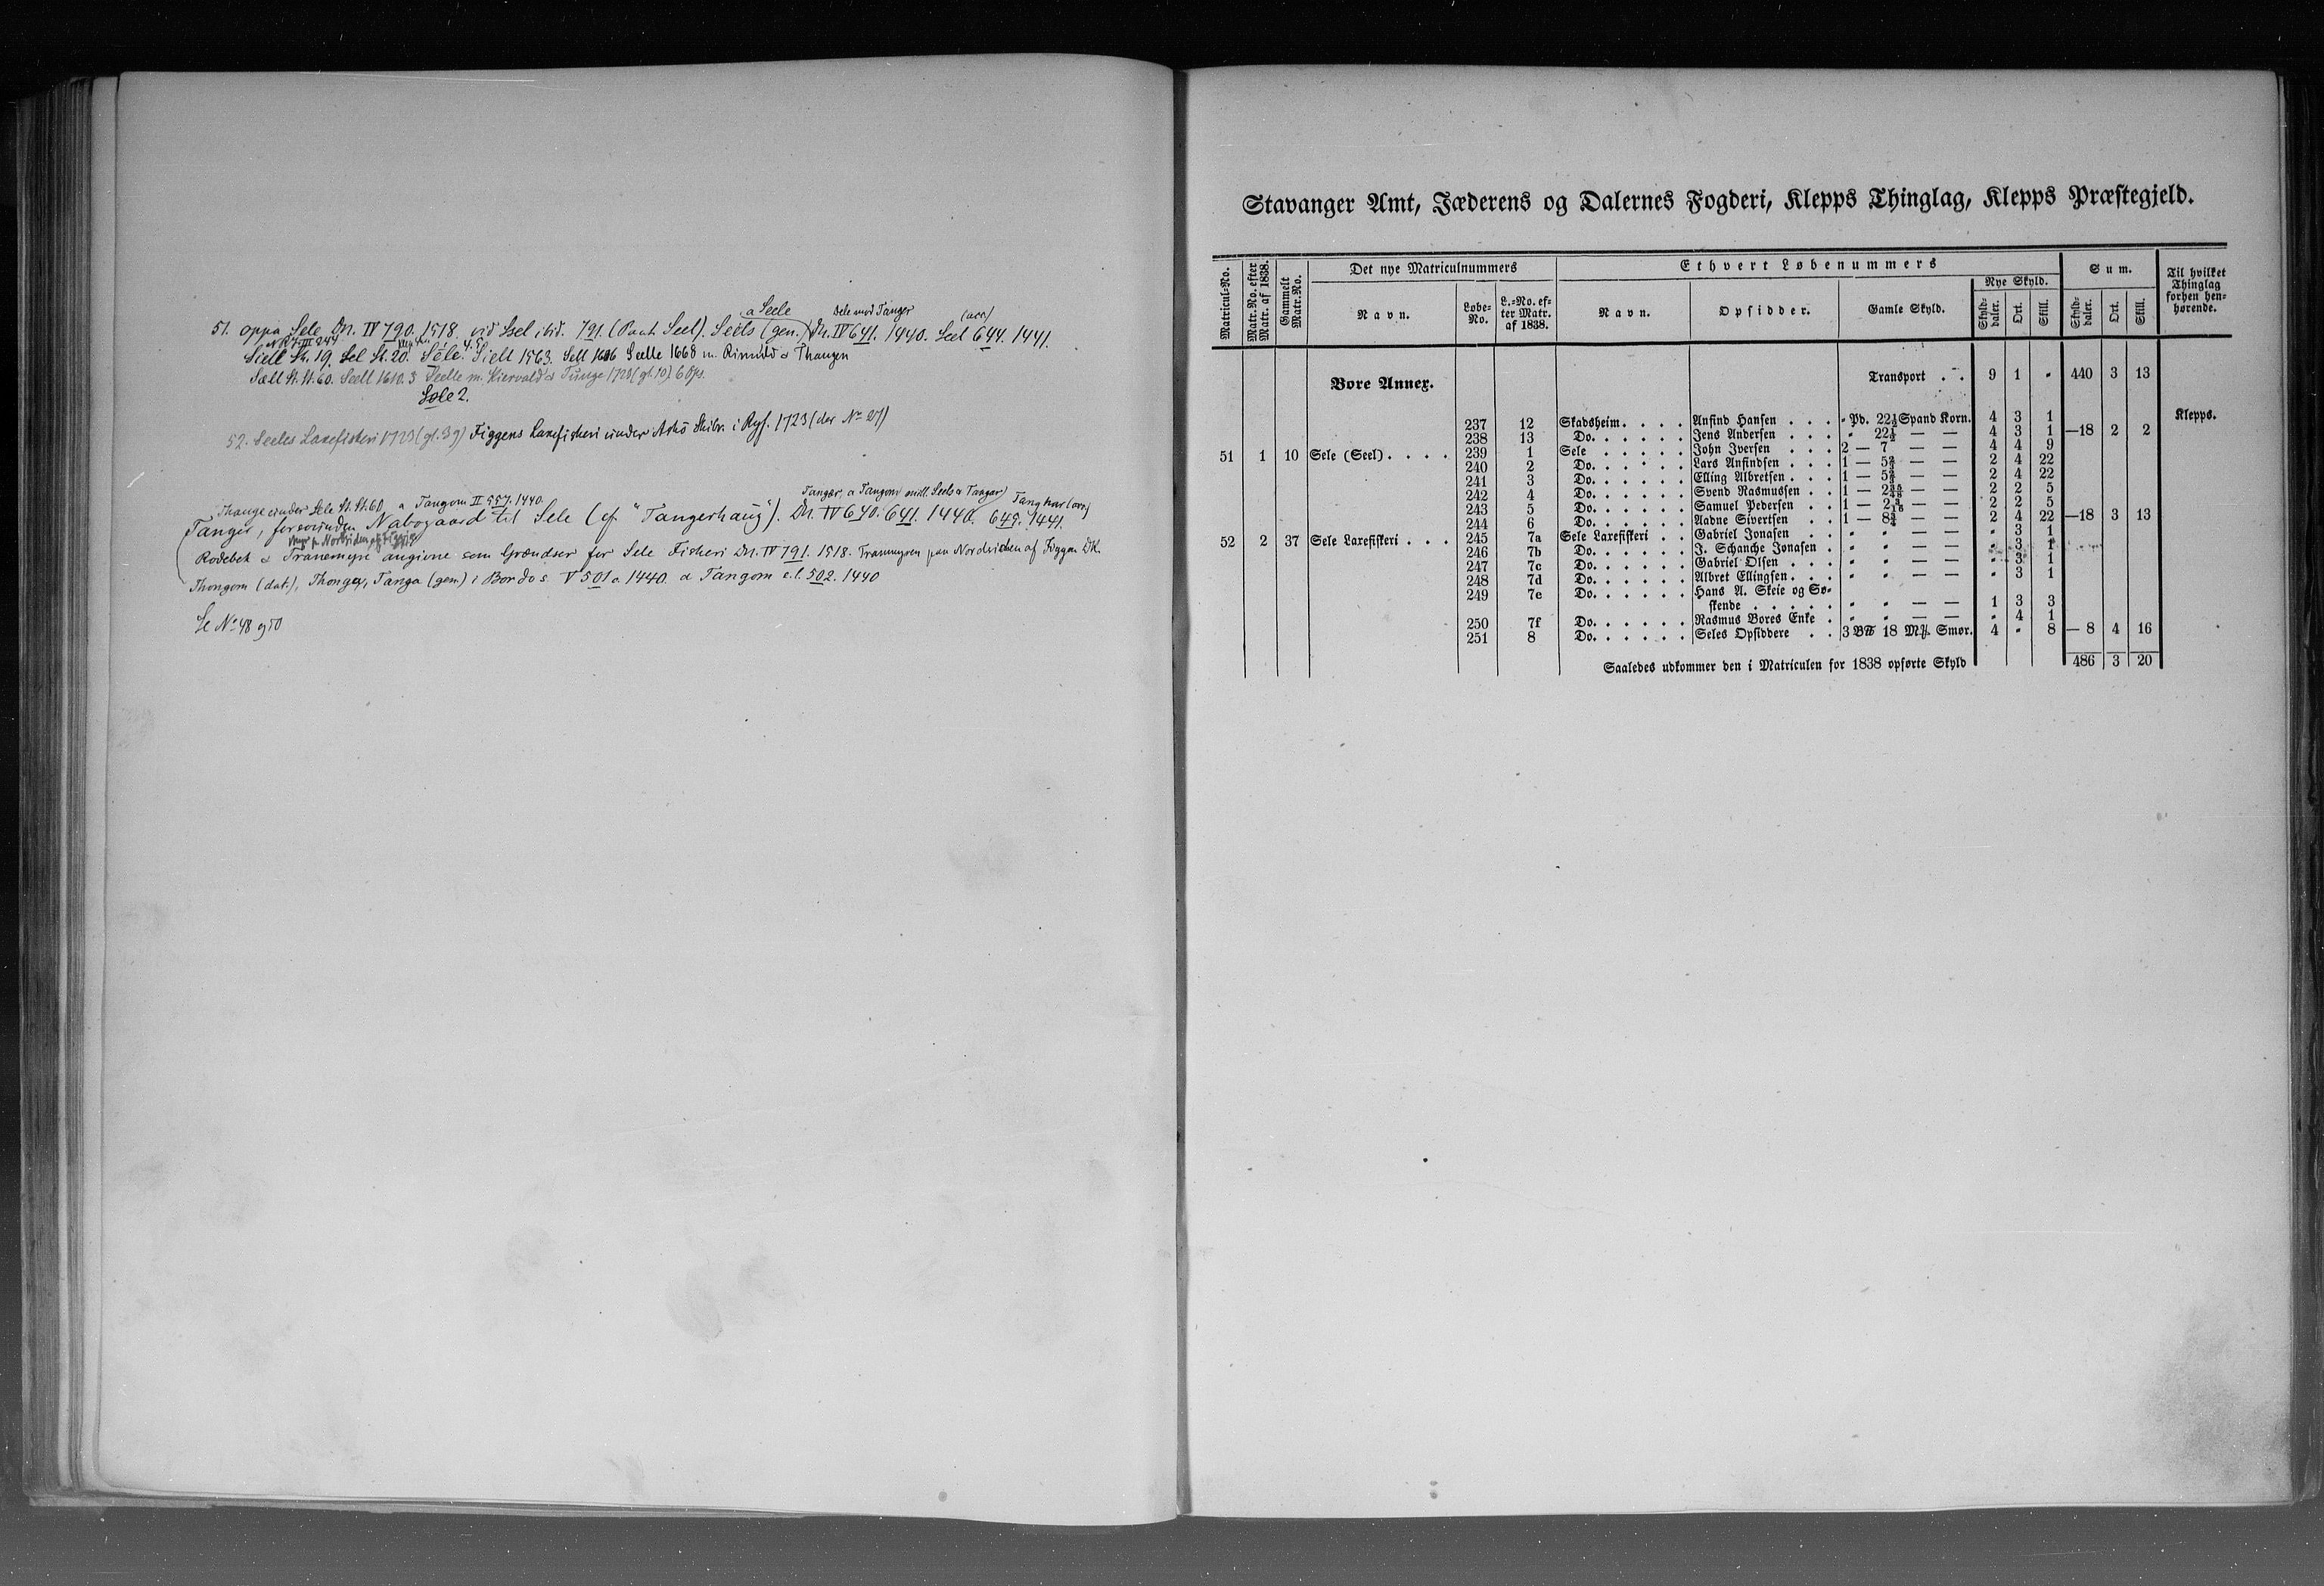 a Seele Sele mod Tanger (acc)
51. oppa Sele Dn. IV 790. 1518. vid Ssel ibid. 791. (Paat Seel). Seels (gen.) Dn. IV 641. 1440. Seel 644. 1441.
NRJ III 244
Siell St. 19. Sel St. 20. Séle. Siell 1563. Sell 1606 Seelle 1668 m. Thangen
Sæll St. St. 60. Seell 1610. 3 Seelle m. Kiervald & Tunge 1723 (gl. 10) 6 Sps.
Søle 2.
52. Seeles Laxefiskeri 1723 (gl. 39) Figgens Laxefiskeri under Askø Skibr. i Ryf. 1723 (der No 27)
Thange under Sele St. St. 60 a Tangom II 557. 1440. Tanger, a Tangom mill. Seels a Tangar) Tanghar (acc)
Tanger, forsvunden Nabogaard til Sele (cf. "Tangerhaug"). Dn. IV 640. 641. 1440. 645. 1441.
Rodebek & Tranemyre angivne som Grændser for Sele Fiskeri Dn. IV 791. 1518. Tranmyren paa Nordsiden af Figgen DK.
Thongom (dat.), Thonger, Tanga (gen) i Bordos. V 501 a 1440. a Tangom c.l. 502. 1440
Se No 48 og 50
Stavanger Amt, Jæderens og Dalernes Fogderi, Klepps Thinglag, Klepps Præstegjeld.
Matricul-No. Matr.-No. efter Matr. af 1838. Gammelt Matr.-No. Det nye Matriculnummers Ethvert Løbenummers Sum. Til hvilket Thinglag forhen henhørende.
Navn. Løbe-No. L.-No. efter Matr. af 1838. Navn. Opsidder. Gamle Skyld. Nye Skyld. Skylddaler. Ort. Skill. Skylddaler. Ort. Skill.
Bore Annex. Transport . . 9 1 " 440 3 13
237 12 Skadsheim. . . . Anfind Hansen . . . " Pd. 22½ Spand Korn. 4 3 1 Klepps.
238 13 Do. . . . . . Jens Andersen . . . " 22½ — — 4 3 1 —18 2 2
51 1 10 Sele (Seel) . . . . 239 1 Sele . . . . . John Iversen . . . 2 — 7 — — 4 4 9
240 2 Do. . . . . . Lars Anfindsen . . . 1 — 5⅔ — — 2 4 22
241 3 Do. . . . . . Elling Albretsen . . . 1 — 5⅔ — — 2 4 22
242 4 Do. . . . . . Svend Rasmussen . . 1 — 2 35/48 — — 2 2 5
243 5 Do. . . . . . Samuel Pedersen . . 1 — 2 3/16 — — 2 2 5
244 6 Do. . . . . . Aadne Sivertsen . . 1 — 8¾ — — 2 4 22 —18 3 13
52 2 37 Sele Laxefiskeri . . . 245 7a Sele Laxefiskeri . . Gabriel Jonasen . . " " — — " 3 1
246 7b Do. . . . . . J. Schanche Jonasen . " " — — " 3 1
247 7c Do. . . . . . Gabriel Olsen . . . " " — — " 3 1
248 7d Do. . . . . . Albret Ellingsen. . . " " — — " 3 1
249 7e Do. . . . . . Hans A. Skeie og Sø-
skende . . . . . " " — — 1 3 3
250 7f Do. . . . . . Rasmus Bores Enke . " " — — " 4 1
251 8 Do. . . . . . Seles Opsiddere . . 3 B℔ 18 Mℳ. Smør. 4 " 8 — 8 4 16
Saaledes udkommer den i Matriculen for 1838 opførte Skyld 486 3 20